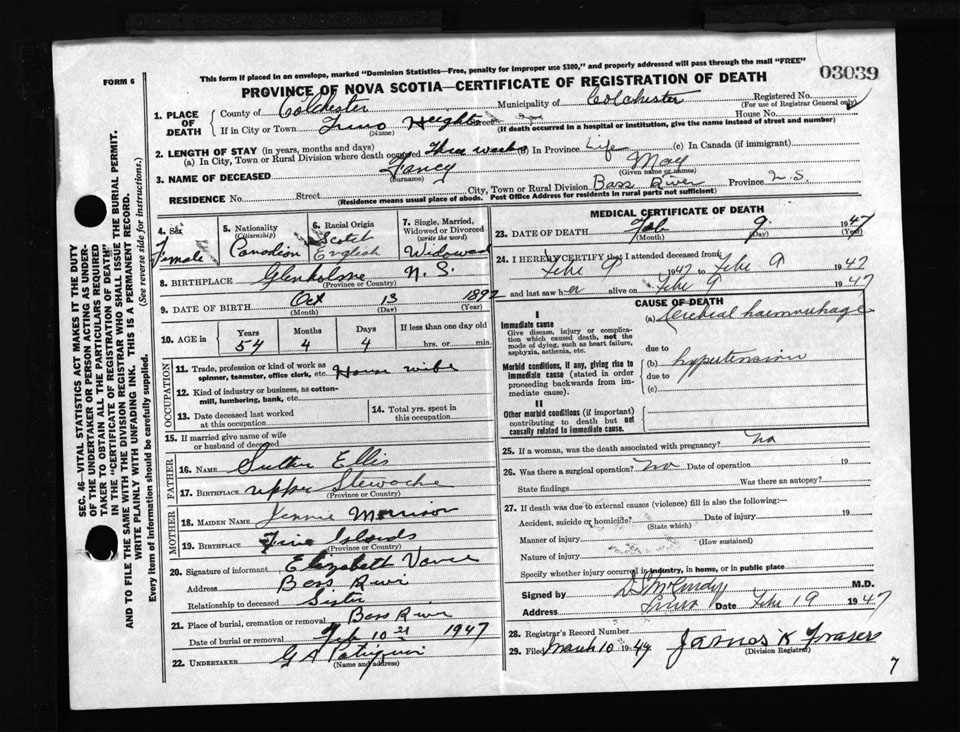 This form if placed in an envelope, marked "Dominion Statistics—Free, penalty for improper use $300," and properly addressed will pass through the mail "FREE"
FORM 6
PROVINCE OF NOVA SCOTIA—CERTIFICATE OF REGISTRATION OF DEATH
03039
1. PLACE OF DEATH
County of Colchester Municipality of Colchester Registered No.
(For use of Registrar General only)
If in City or Town Truro Heights Street House No.
(Name) (If death occurred in a hospital or institution, give the name instead of street and number)
2. LENGTH OF STAY (in years, months and days)
(a) In City, Town or Rural Division where death occurred Three weeks (b) In Province Life (c) In Canada (if immigrant)
3. NAME OF DECEASED May
(Surname) (Given name or names)
RESIDENCE No. Street City, Town or Rural Division Bass River Province N.S.
(Residence means usual place of abode. Post Office Address for residents in rural parts not sufficient)
4. Sex Female
5. Nationality (Citizenship) Canadian
6. Racial Origin Scotch English
7. Single, Married, Widowed or Divorced (write the word) Widowed
8. BIRTHPLACE Glenholme N.S.
(Province or Country)
9. DATE OF BIRTH Oct 13 1892
(Month) (Day) (Year)
10. AGE in Years 54 Months 4 Days 4 If less than one day old hrs. or min.
OCCUPATION
11. Trade, profession or kind of work as spinner, teamster, office clerk, etc. House wife
12. Kind of industry or business, as cotton-mill, lumbering, bank, etc.
13. Date deceased last worked at this occupation
14. Total yrs. spent in this occupation
15. If married give name of wife or husband of deceased
FATHER
16. NAME Ellis
17. BIRTHPLACE Upper Stewacke
(Province or Country)
MOTHER
18. MAIDEN NAME Jennie Morrison
19. BIRTHPLACE Five Islands
(Province or Country)
20. Signature of informant Elizabeth Vance
Address Bass River
Relationship to deceased Sister
21. Place of burial, cremation or removal Bass River
Date of burial or removal Feb 10 1947
22. UNDERTAKER G A
(Name and address)
MEDICAL CERTIFICATE OF DEATH
23. DATE OF DEATH Feb. 9. 1947
(Month) (Day) (Year)
24. I HEREBY CERTIFY that I attended deceased from
Feb. 9 1947 to Feb. 9 1947
and last saw her alive on Feb. 9 1947
CAUSE OF DEATH
I
Immediate cause
Give disease, injury or complication which caused death, not the mode of dying, such as heart failure, asphyxia, asthenia, etc.
(a) Cerebral haemorrhage
due to
Morbid conditions, if any, giving rise to immediate cause (stated in order proceeding backwards from immediate cause).
(b) hypertension
due to
(c)
II
Other morbid conditions (if important) contributing to death but not causally related to immediate cause.
25. If a woman, was the death associated with pregnancy? no
26. Was there a surgical operation? no Date of operation 19
State findings Was there an autopsy?
27. If death was due to external causes (violence) fill in also the following:—
Accident, suicide or homicide? Date of injury 19
(State which)
Manner of injury
(How sustained)
Nature of injury
Specify whether injury occurred in industry, in home, or in public place
Signed by M.D.
Address Truro Date Feb. 19 1947
28. Registrar's Record Number
29. Filed March 10 1947 James K Fraser
(Division Registrar)
7
SEC. 46—VITAL STATISTICS ACT MAKES IT THE DUTY
OF THE UNDERTAKER OR PERSON ACTING AS UNDER-
TAKER TO OBTAIN ALL THE PARTICULARS REQUIRED
IN THE "CERTIFICATE OF REGISTRATION OF DEATH"
AND TO FILE THE SAME WITH THE DIVISION REGISTRAR WHO SHALL ISSUE THE BURIAL PERMIT.
WRITE PLAINLY WITH UNFADING INK. THIS IS A PERMANENT RECORD.
Every item of information should be carefully supplied. (See reverse side for instructions.)